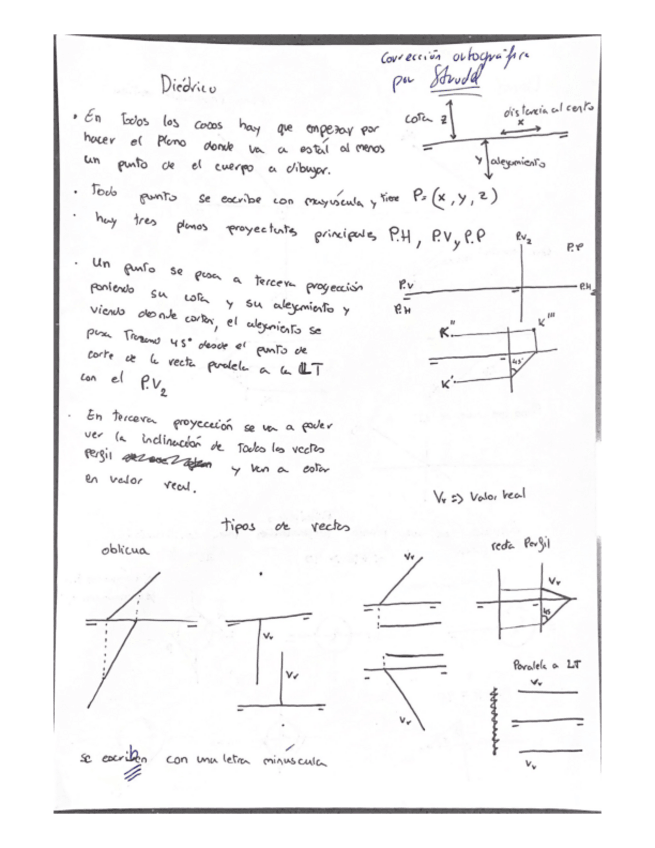 Corrección ortográfica
por Strudel
Diédrico
• En todos los casos hay que empezar por
hacer el plano donde va a estál al menos
un punto de el cuerpo a dibujar.
cota z
distancia al cento
x
y alejamiento
• Todo punto se escribe con mayúscula y tiene P=(x, y, z)
• hay tres planos proyectantes principales P.H, P.V y P.P
P.V2
P.P
P.V
P.H
P.H2
• Un punto se pasa a tercera proyección
poniendo su cota y su alejamiento y
viendo donde cortan, el alejamiento se
pasa trazano 45° desde el punto de
corte de la recta paralela a la LT
con el P.V2
K''
K'''
45°
K'
• En tercera proyección se va a poder
ver la inclinación de todas las rectas
perfil y van a estar
en valor real.
Vr => Valor real
tipos de rectas
oblicua
Vr
Vr
Vr
Vr
recta Perfil
Vr
45
Paralela a LT
Vr
Vr
se escriben con una letra minúscula